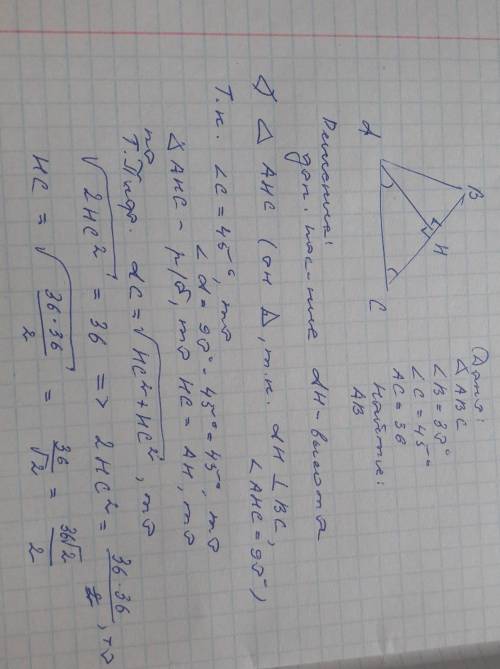 B
H
A
C
Дано:
△ABC
∠B = 30°
∠C = 45°
AC = 36
Найти:
AB
Решение:
доп. пос-ние AH - высота
△ AHC (он △, т.к. AH ⊥ BC,
∠AHC = 90°),
Т.к. ∠C = 45°, то
∠A = 90° - 45° = 45°, то
△AHC - р/б, то HC = AH, то
по
Т. Пифр. AC = √HC² + HC², то
√2HC² = 36 => 2HC² = 36·36, то
HC = √36·36/2 = 36/√2 = 36√2/2